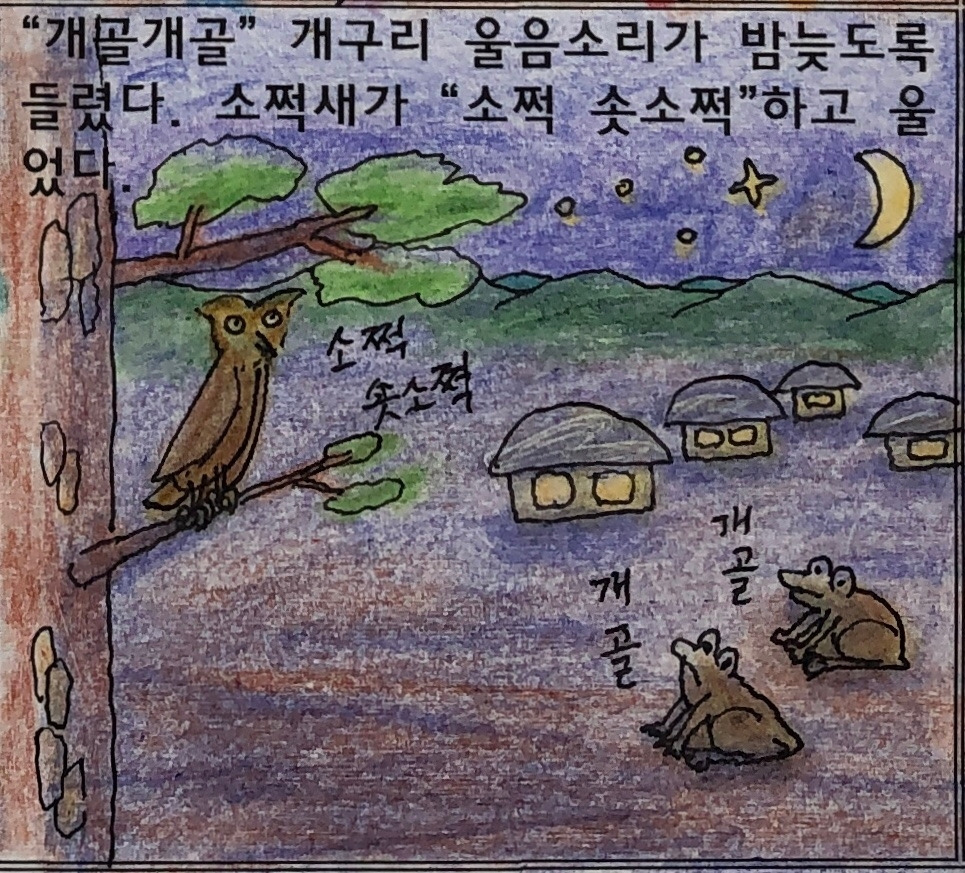 “개골개골” 개구리 울음소리가 밤늦도록
들렸다. 소쩍새가 “소쩍 솟소쩍”하고 울
었다.
소쩍
솟소쩍
개
골
개
골